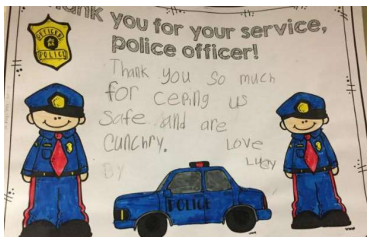 Thank you for your service,
police officer!
OFFICER
POLICE
Thank you so much
for ceping us
safe and are
cunchry.
Love
Lucy
By
POLICE